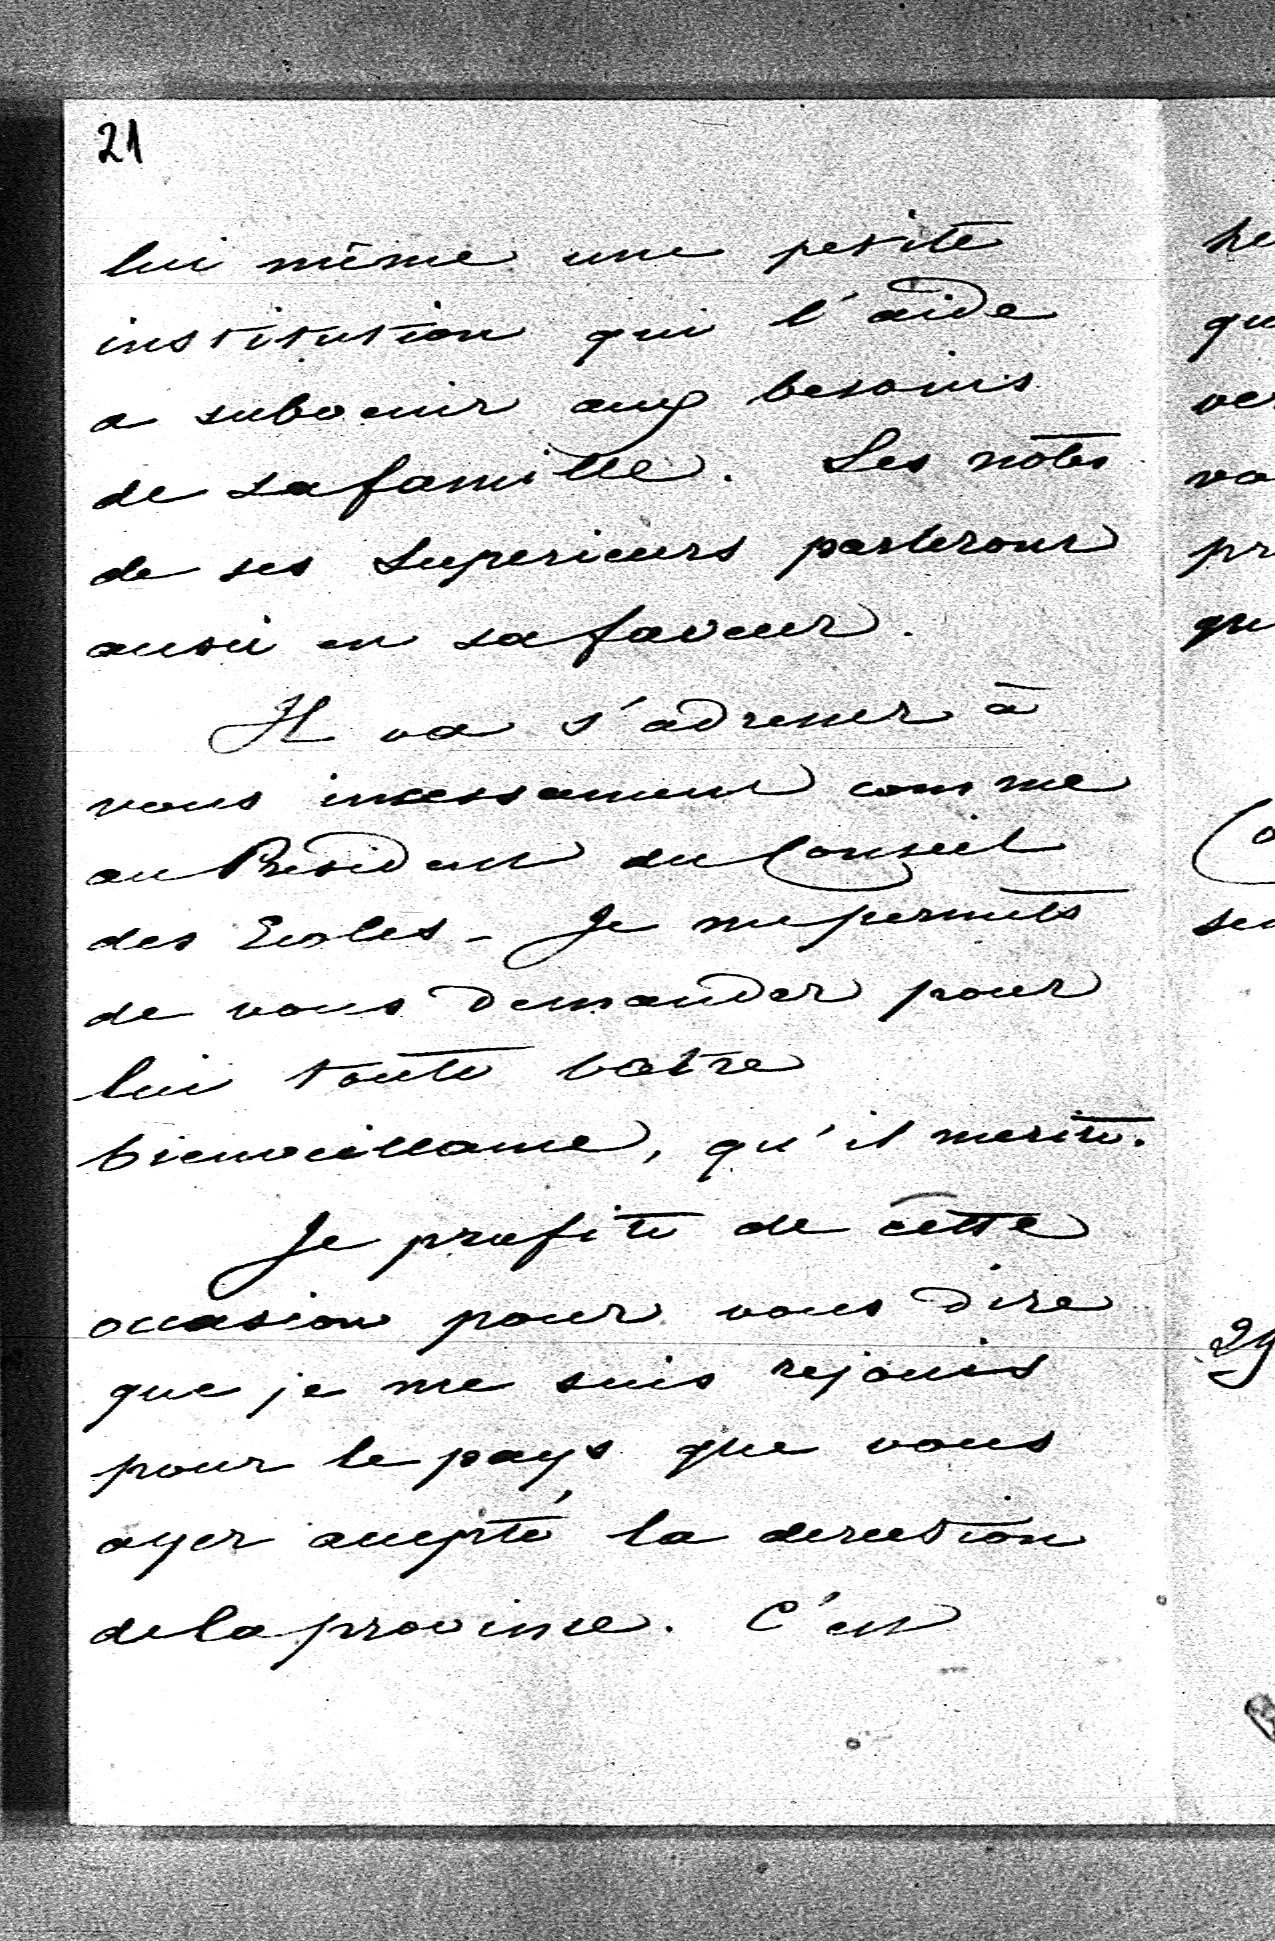 21
lui même une petite
institution qui l'aide
a subvenir aux besoins
de sa famille. Les notes
de ses Superieurs parleront
aussi en sa faveur.
Il va s'adresser à
vous incessament comme
au President du Conseil
des Ecoles - Je me permets
de vous demander pour
lui toute votre
bienveillance, qu'il merite.
Je profite de cette
occasion pour vous dire
que je me suis rejouis
pour le pays que vous
ayer accepté la direction
de la province. C'est
qu
ve
va
pr
qu
29